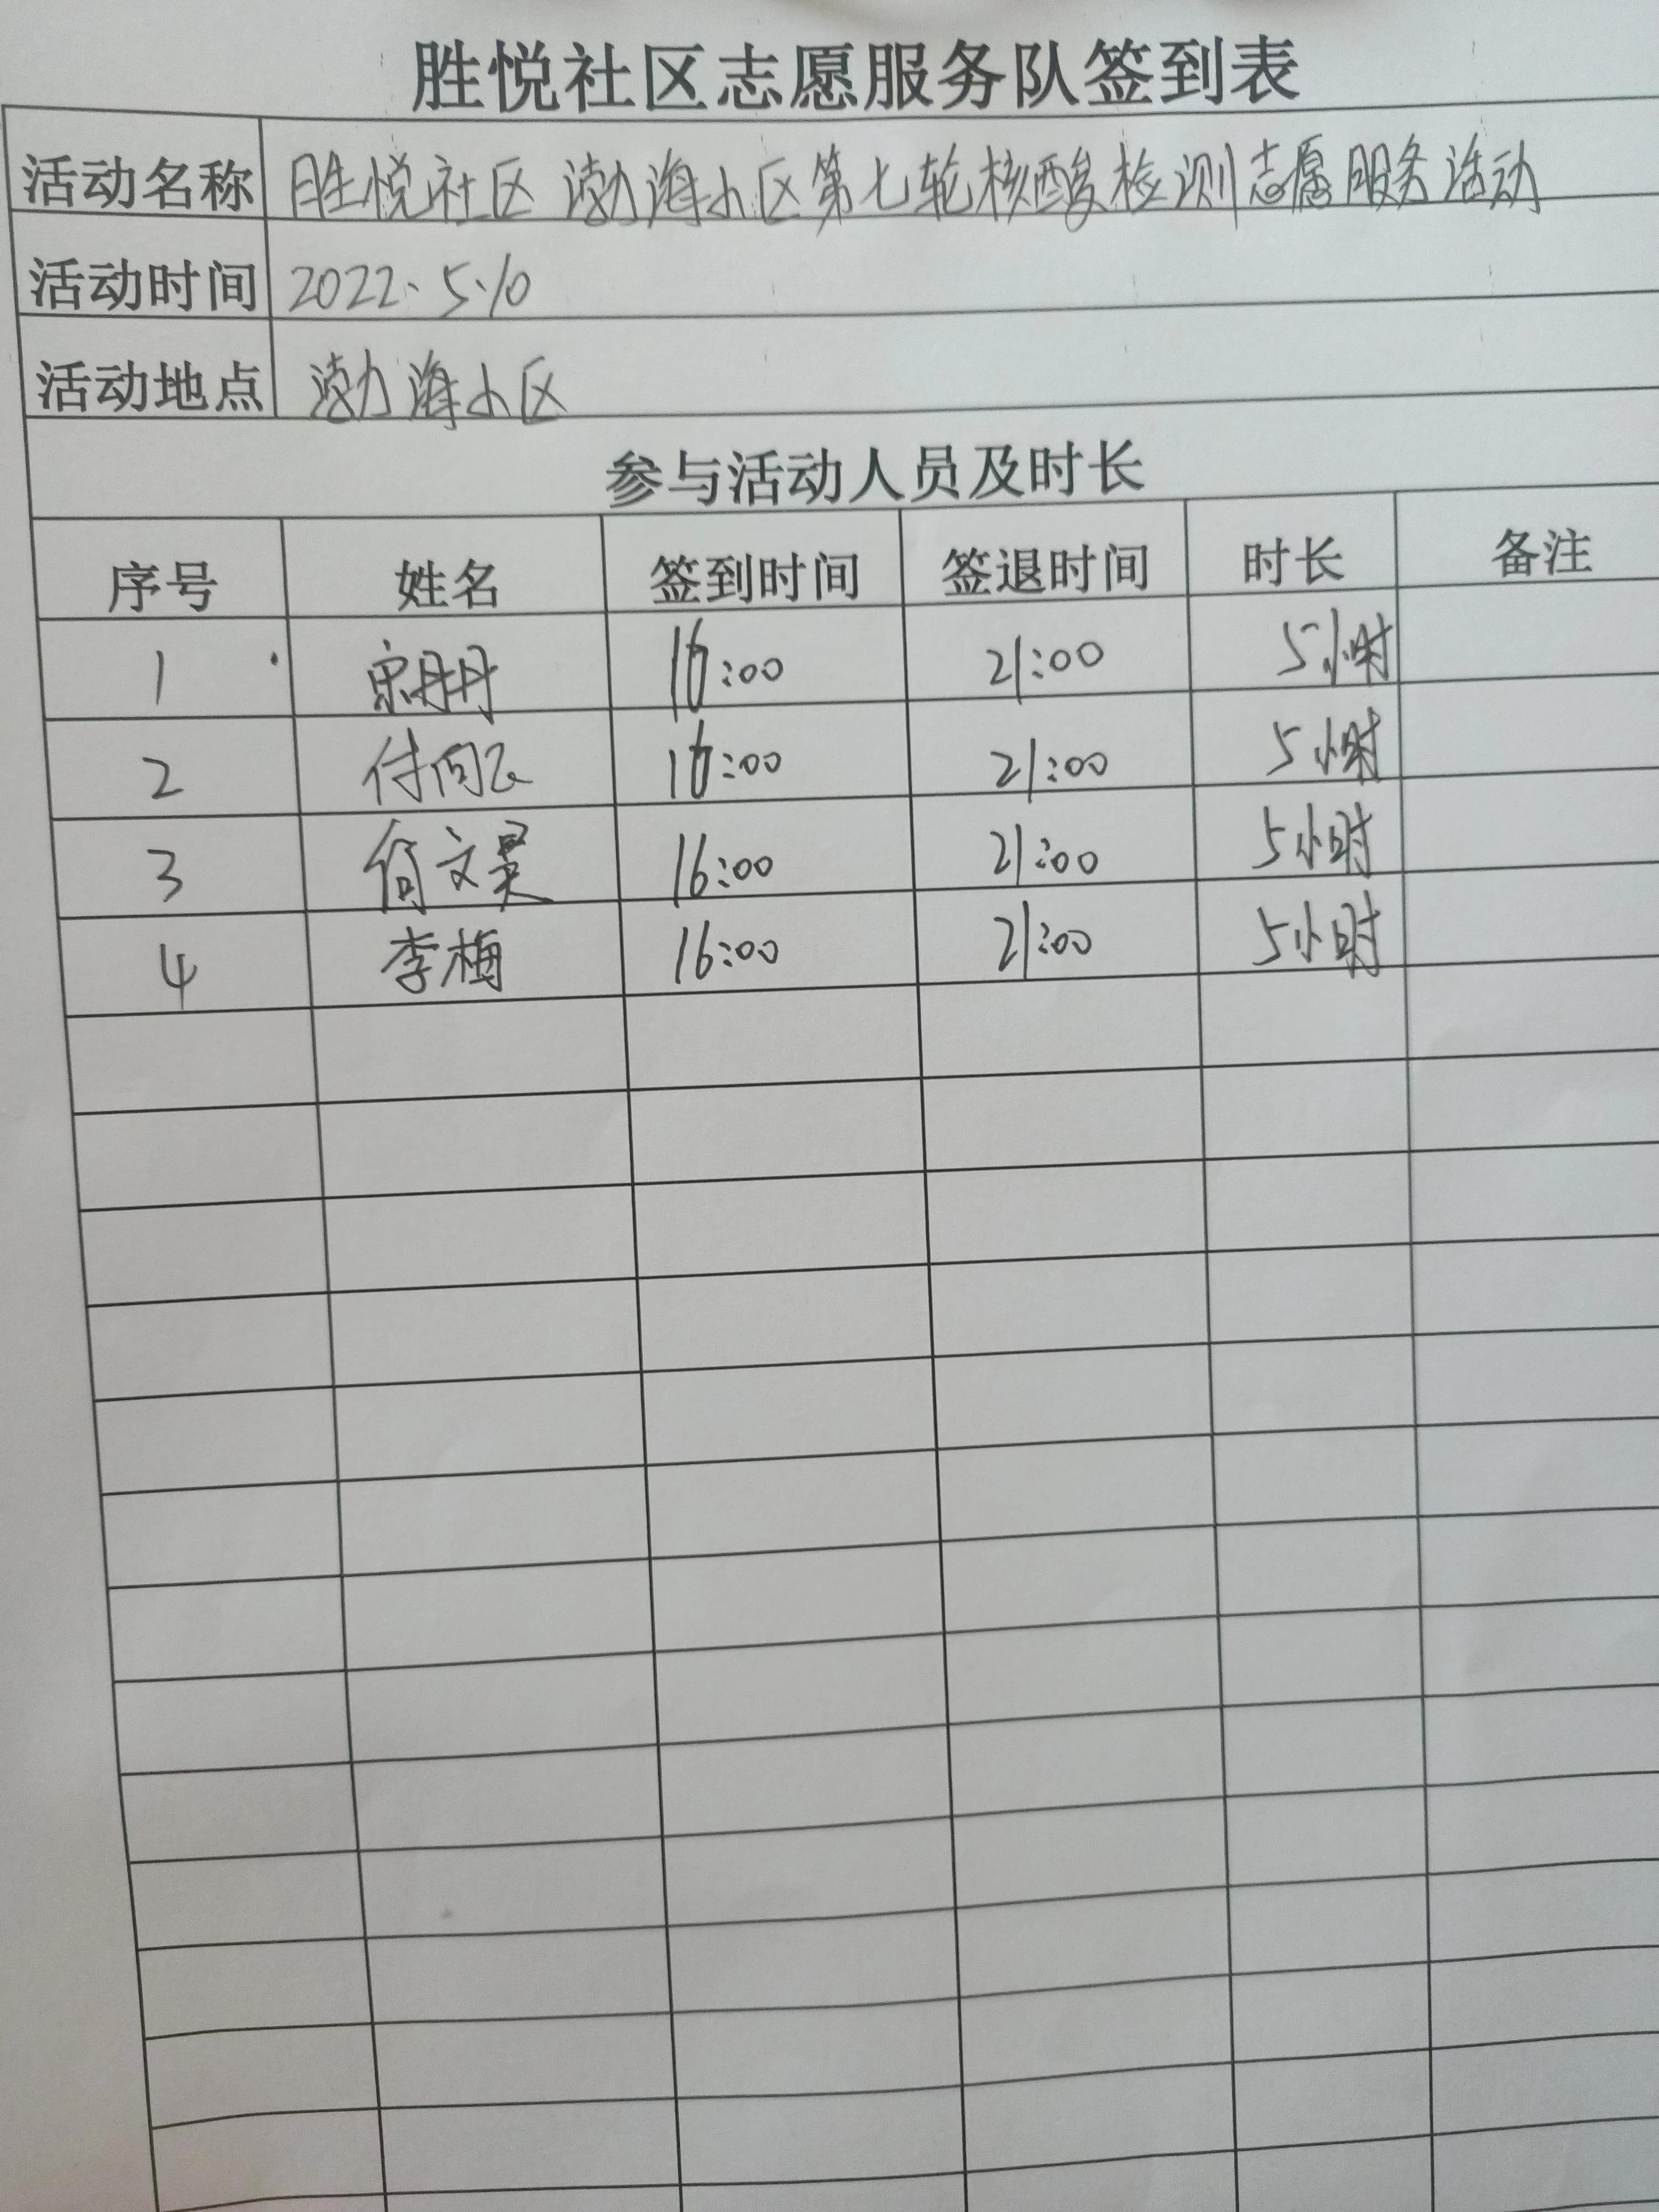 胜悦社区志愿服务队签到表
活动名称 胜悦社区渤海小区第七轮核酸检测志愿服务活动
活动时间 2022.5.10
活动地点 渤海小区
参与活动人员及时长
序号 姓名 签到时间 签退时间 时长 备注
1 宋丹丹 16:00 21:00 5小时
2 16:00 21:00 5小时
3 16:00 21:00 5小时
4 李梅 16:00 21:00 5小时